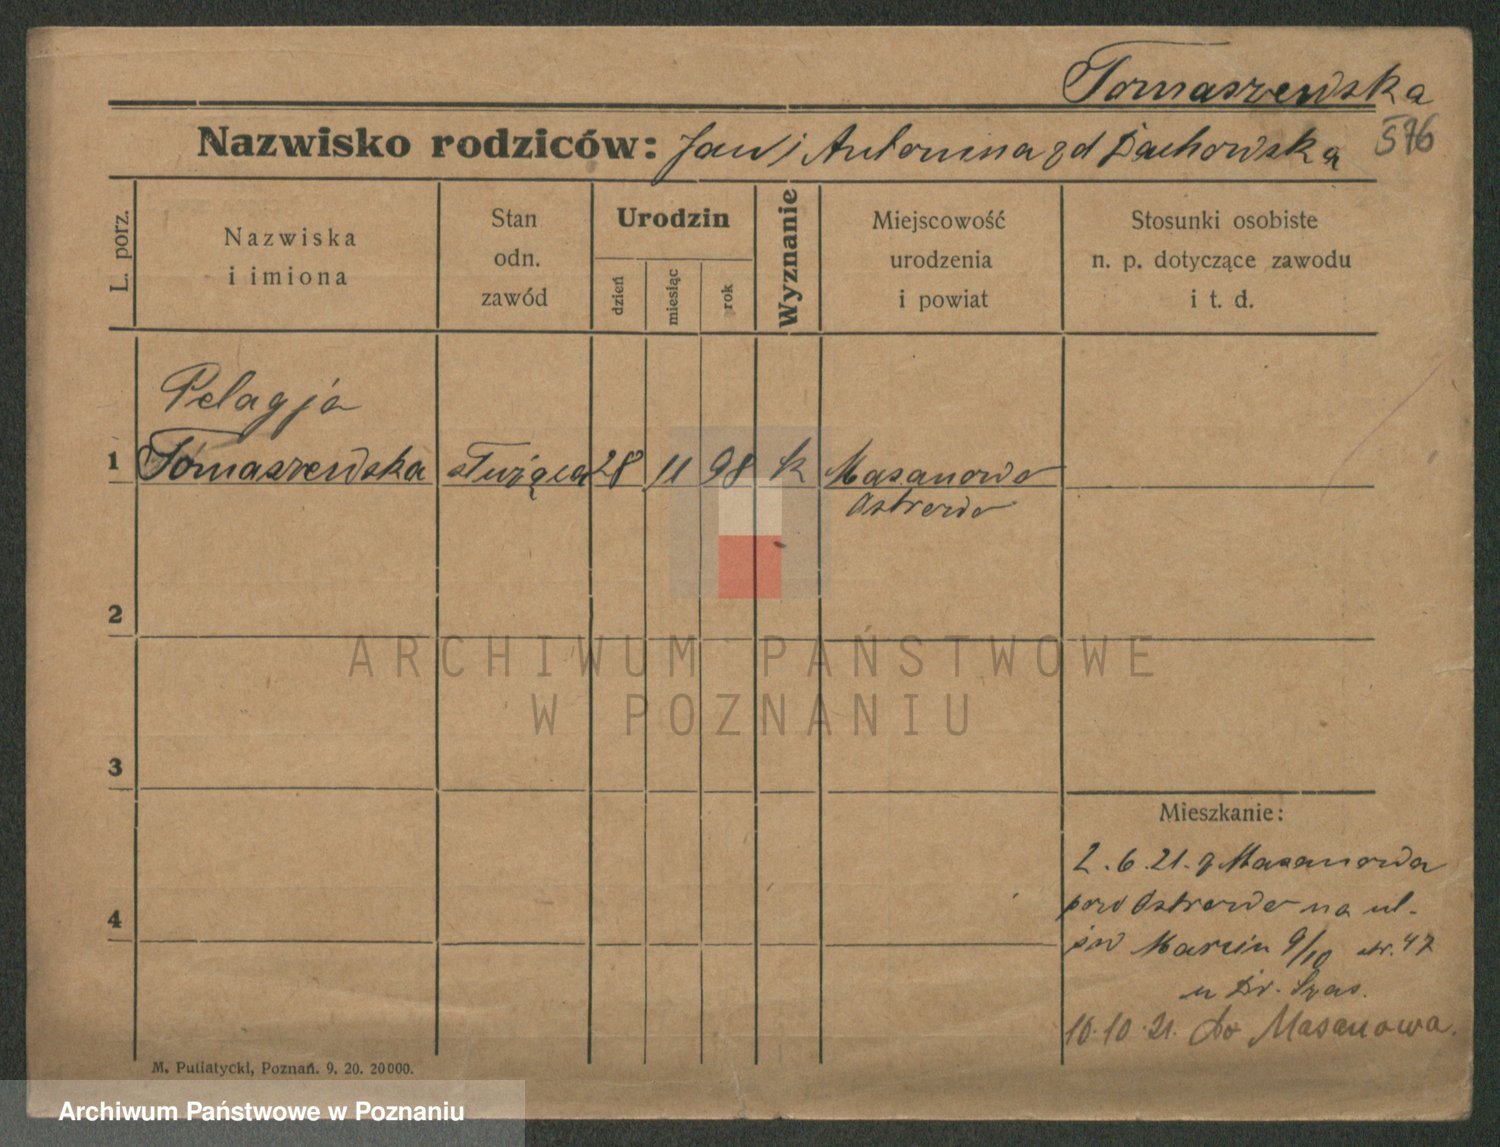 Tomaszewska
576
Nazwisko rodziców: Jan i Antonina zd Dachowska
L. porz.
Nazwiska
i imiona
Stan
odn.
zawód
Urodzin
dzień
miesiąc
rok
Wyznanie
Miejscowość
urodzenia
i powiat
Stosunki osobiste
n. p. dotyczące zawodu
i t. d.
Pelagja
1 Tomaszewska służąca 28 11 98 k Masanowo
Ostrowo
2
3
4
Mieszkanie:
2.6.21. z Masanowa
pow Ostrowo na ul.
św Marcin 9/10 str. 47
u Dr.
10.10.21. do Masanowa.
M. Putiatycki, Poznań. 9. 20. 20000.
ARCHIWUM PAŃSTWOWE
W POZNANIU
Archiwum Państwowe w Poznaniu